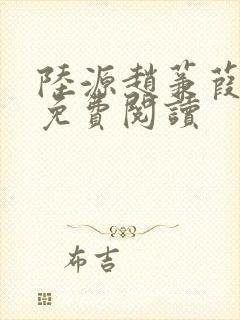 陸源趙蒹葭
免費閱讀
布吉